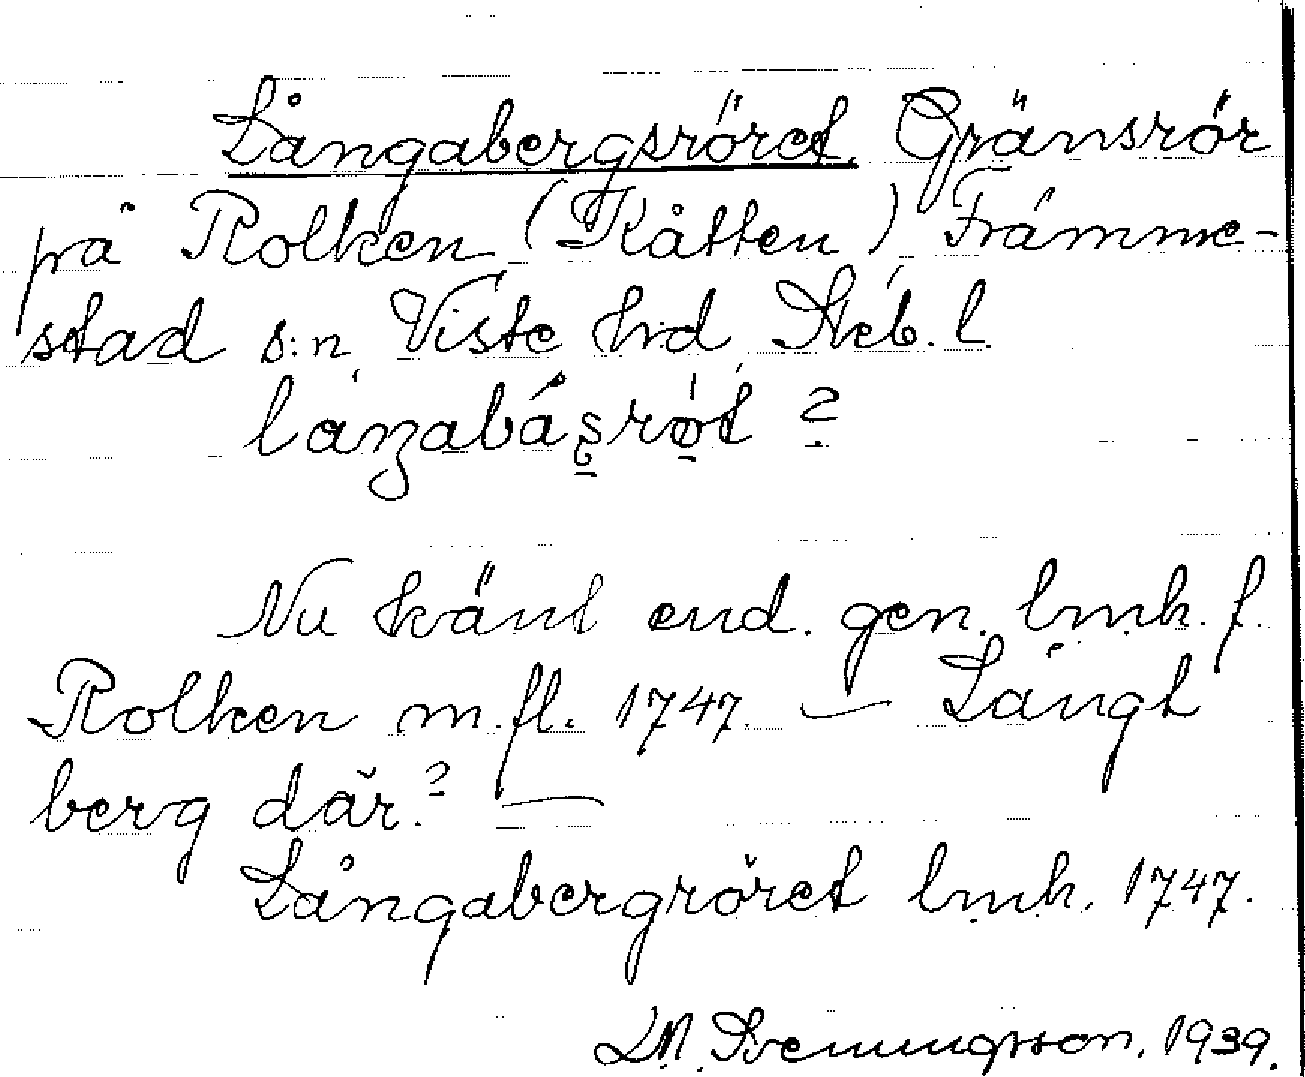 Långabergsröret. Gränsrör
på Rolken (Kåtten) Främme-
stad s:n Viste hrd Skb. l
Nu känt end. gen. lmh. f.
Rolken m.fl. 1747. — Långt
berg där? —
Långabergröret lmh. 1747.
1939.